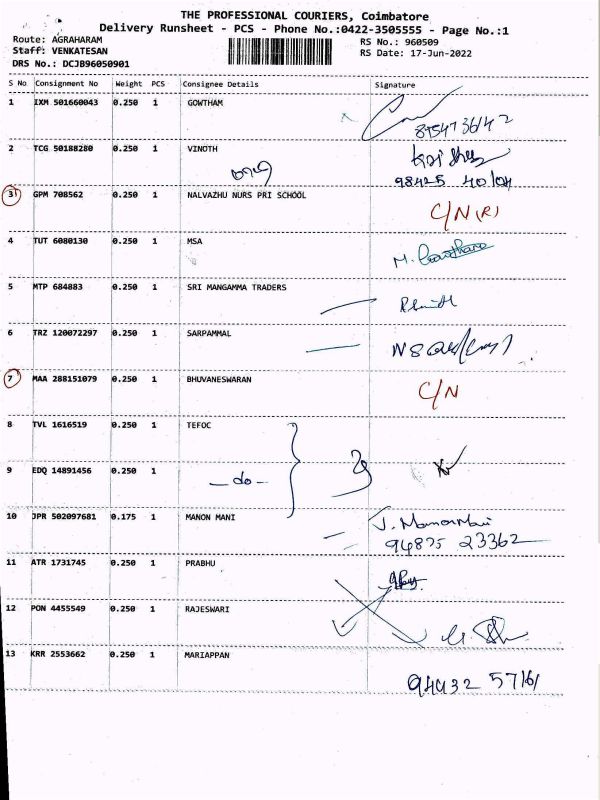 THE PROFESSIONAL COURIERS, Coimbatore
Delivery Runsheet - PCS - Phone No.:0422-3505555 - Page No.:1
Route: AGRAHARAM
Staff: VENKATESAN
DRS No.: DCJB96050901
RS No.: 960509
RS Date: 17-Jun-2022
S No Consignment No Weight PCS Consignee Details Signature
1 IXM 501660043 0.250 1 GOWTHAM
2 TCG 50188280 0.250 1 VINOTH
3 GPM 708562 0.250 1 NALVAZHU NURS PRI SCHOOL C/N (R)
4 TUT 6080130 0.250 1 MSA
5 MTP 684883 0.250 1 SRI MANGAMMA TRADERS
6 TRZ 120072297 0.250 1 SARPAMMAL
7 MAA 288151079 0.250 1 BHUVANESWARAN C/N
8 TVL 1616519 0.250 1 TEFOC
9 EDQ 14891456 0.250 1 - do -
10 JPR 502097681 0.175 1 MANON MANI J. Manonmani
94875 23362
11 ATR 1731745 0.250 1 PRABHU
12 PON 4455549 0.250 1 RAJESWARI
13 KRR 2553662 0.250 1 MARIAPPAN